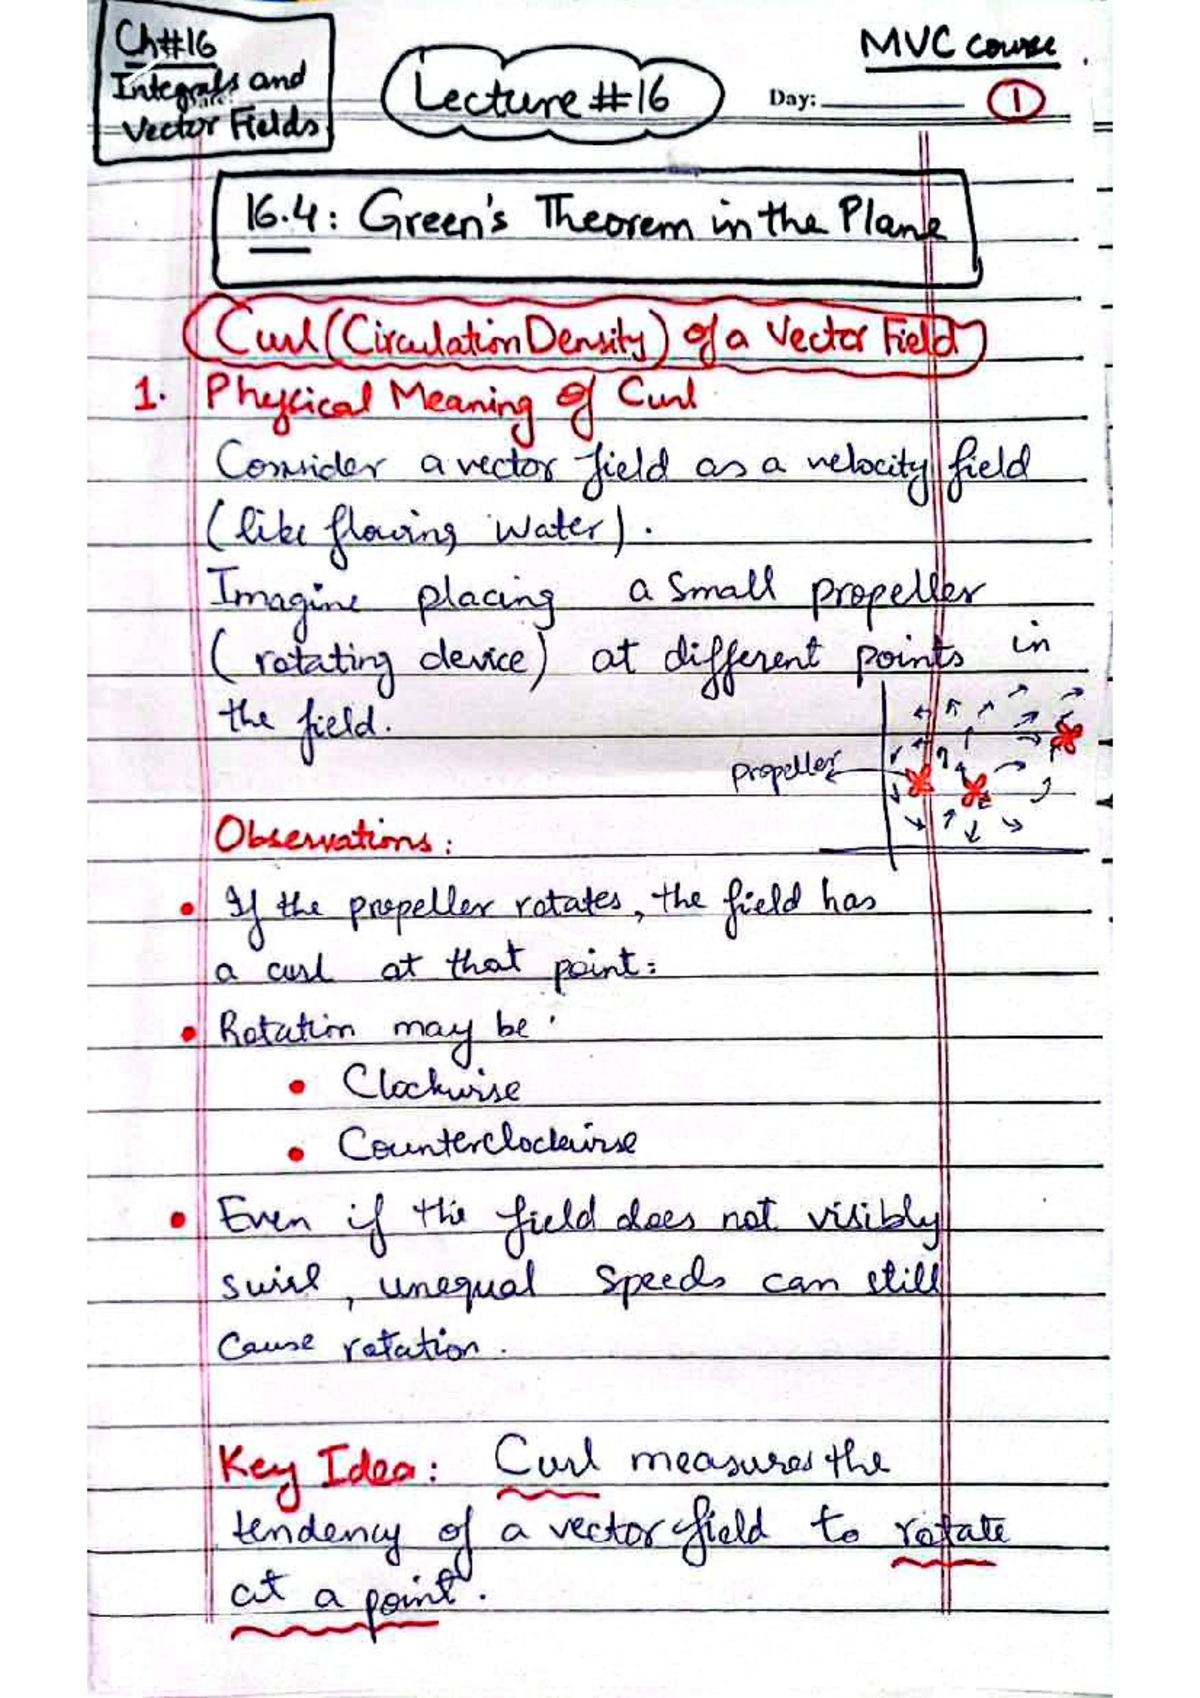 Ch#16
Integrals and
Vector Fields
Lecture #16
MVC course
Day:
1
16.4: Green's Theorem in the Plane
Curl (Circulation Density) of a Vector Field
1. Physical Meaning of Curl
Consider a vector field as a velocity field
(like flowing water).
Imagine placing a small propeller
(rotating device) at different points in
the field.
propeller
Observations:
• If the propeller rotates, the field has
a curl at that point:
• Rotation may be:
• Clockwise
• Counterclockwise
• Even if the field does not visibly
swirl, unequal speeds can still
cause rotation.
Key Idea: Curl measures the
tendency of a vector field to rotate
at a point.